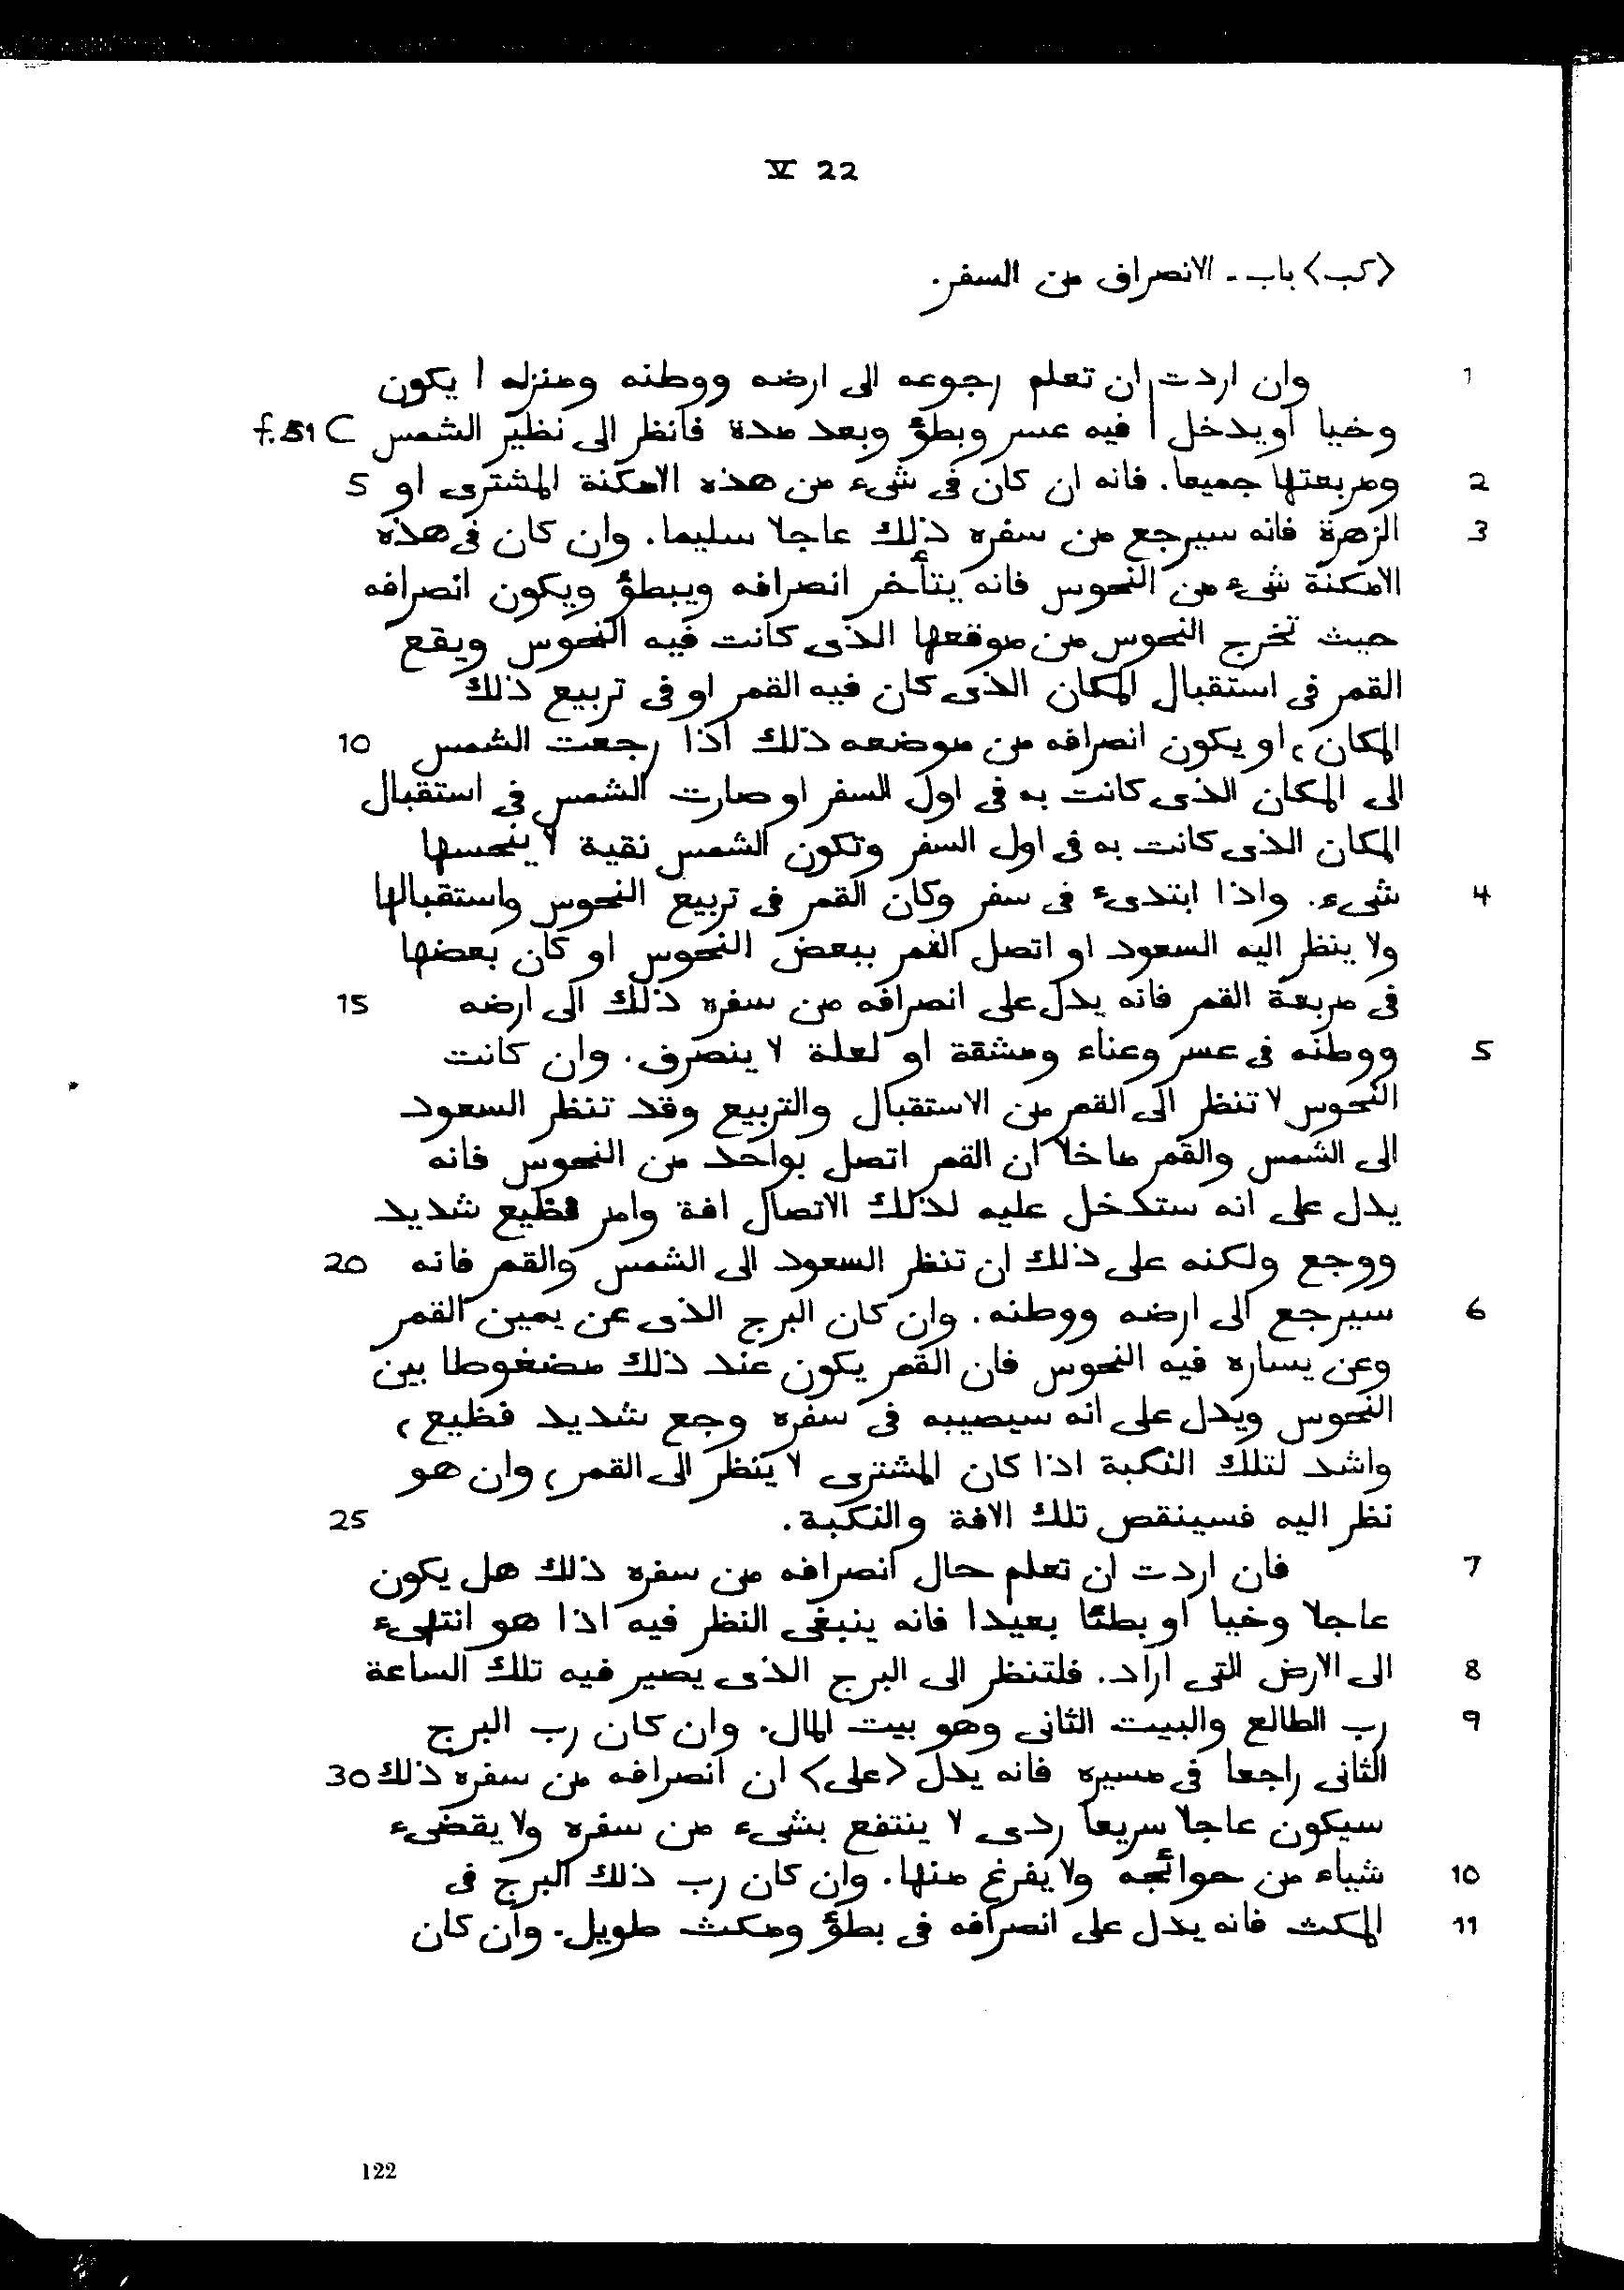 V 22
<كب> باب - الانصراف من السفر.
1 وان اردت ان تعلم رجوعه الى ارضه ووطنه ومنزله ا يكون
وخيا او يدخل | فيه عسر وبطؤ وبعد مدة فانظر الى نظير الشمس f. 51 C
2 ومربعتها جميعا. فانه ان كان فى شىء من هذه الامكنة المشترى او 5
3 الزهرة فانه سيرجع من سفره ذلك عاجلا سليما. وان كان فى هذه
الامكنة شىء من النحوس فانه يتأخر انصرافه ويبطؤ ويكون انصرافه
حيث تخرج النحوس من موقعها الذى كانت فيه النحوس ويقع
القمر فى استقبال المكان الذى كان فيه القمر او فى تربيع ذلك
المكان، او يكون انصرافه من موضعه ذلك اذا رجعت الشمس 10
الى المكان الذى كانت به فى اول السفر او صارت الشمس فى استقبال
المكان الذى كانت به فى اول السفر وتكون الشمس نقية لا ينحسها
4 شىء. واذا ابتدىء فى سفر وكان القمر فى تربيع النحوس واستقبالها
ولا ينظر اليه السعود او اتصل القمر ببعض النحوس او كان بعضها
فى مربعة القمر فانه يدل على انصرافه من سفره ذلك الى ارضه 15
5 ووطنه فى عسر وعناء ومشقة او لعلة لا ينصرف. وان كانت
النحوس لا تنظر الى القمر من الاستقبال والتربيع وقد تنظر السعود
الى الشمس والقمر ماخلا ان القمر اتصل بواحد من النحوس فانه
يدل على انه ستدخل عليه لذلك الاتصال افة وامر فظيع شديد
ووجع ولكنه على ذلك ان تنظر السعود الى الشمس والقمر فانه 20
6 سيرجع الى ارضه ووطنه. وان كان البرج الذى عن يمين القمر
وعن يساره فيه النحوس فان القمر يكون عند ذلك مضغوطا بين
النحوس ويدل على انه سيصيبه فى سفره وجع شديد فظيع،
واشد لتلك النكبة اذا كان المشترى لا ينظر الى القمر، وان هو
نظر اليه فسينقص تلك الافة والنكبة. 25
7 فان اردت ان تعلم حال انصرافه من سفره ذلك هل يكون
عاجلا وخيا او بطئا بعيدا فانه ينبغى النظر فيه اذا هو انتهىء
8 الى الارض التى اراد. فلتنظر الى البرج الذى يصير فيه تلك الساعة
9 رب الطالع والبيت الثانى وهو بيت المال. وان كان رب البرج
الثانى راجعا فى مسيره فانه يدل <على> ان انصرافه من سفره ذلك 30
سيكون عاجلا سريعا ردى لا ينتفع بشىء من سفره ولا يقضىء
10 شياء من حوائجه ولا يفرغ منها. وان كان رب ذلك البرج فى
11 المكث فانه يدل على انصرافه فى بطؤ ومكث طويل. وان كان
122